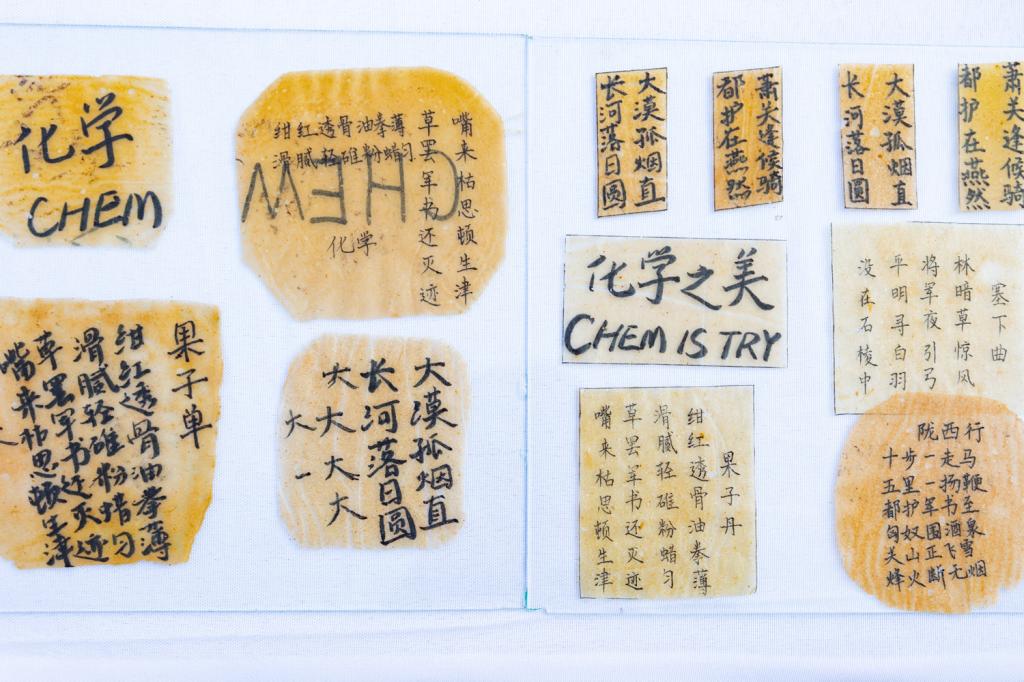 化学
CHEM
绀红透骨油拳薄
滑腻轻碓粉蜡匀
嘴来枯思顿生津
草罢军书还灭迹
CHEM
化学
果子单
绀红透骨油拳薄
滑腻轻碓粉蜡匀
草罢军书还灭迹
嘴来枯思顿生津
大漠孤烟直
长河落日圆
大大大大
大一
大漠孤烟直
长河落日圆
萧关逢候骑
都护在燕然
大漠孤烟直
长河落日圆
萧关逢候骑
都护在燕然
化学之美
CHEM IS TRY
塞下曲
林暗草惊风
将军夜引弓
平明寻白羽
没在石棱中
果子丹
绀红透骨油拳薄
滑腻轻碓粉蜡匀
草罢军书还灭迹
嘴来枯思顿生津
陇西行
十步一走马
五里一扬鞭
都护军书至
匈奴围酒泉
关山正飞雪
烽火断无烟